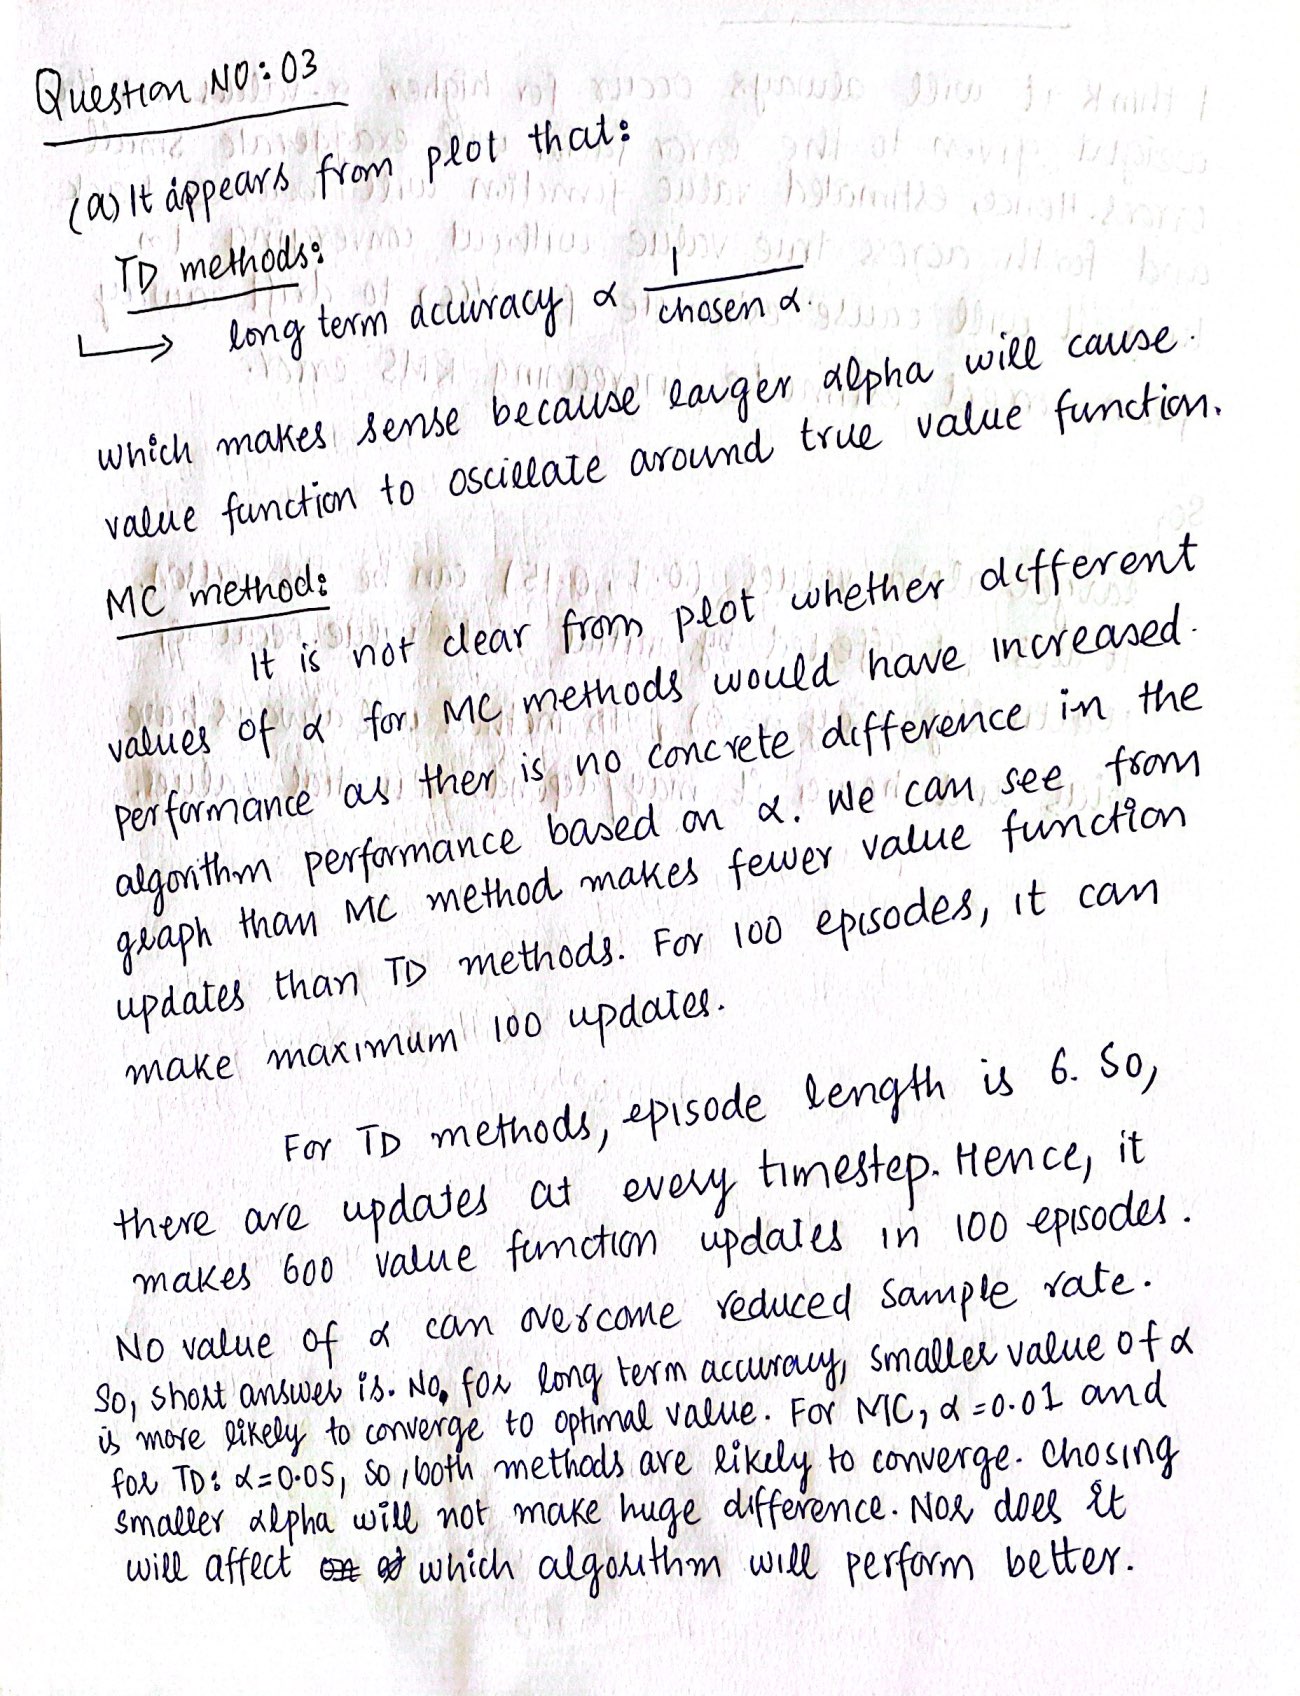 Question NO: 03
(a) It appears from plot that:
TD methods:
long term accuracy ∝ 1 / chosen α.
which makes sense because larger alpha will cause.
value function to oscillate around true value function.
MC method:
It is not clear from plot whether different
values of α for MC methods would have increased.
performance as ther is no concrete difference in the
algorithm performance based on α. We can see from
graph than MC method makes fewer value function
updates than TD methods. For 100 episodes, it can
make maximum 100 updates.
For TD methods, episode length is 6. So,
there are updates at every timestep. Hence, it
makes 600 value function updates in 100 episodes.
No value of α can overcome reduced sample rate.
So, short answer is. No, for long term accuracy, smaller value of α
is more likely to converge to optimal value. For MC, α = 0.01 and
for TD: α = 0.05, so, both methods are likely to converge. Chosing
smaller alpha will not make huge difference. Nor does it
will affect which algorithm will perform better.